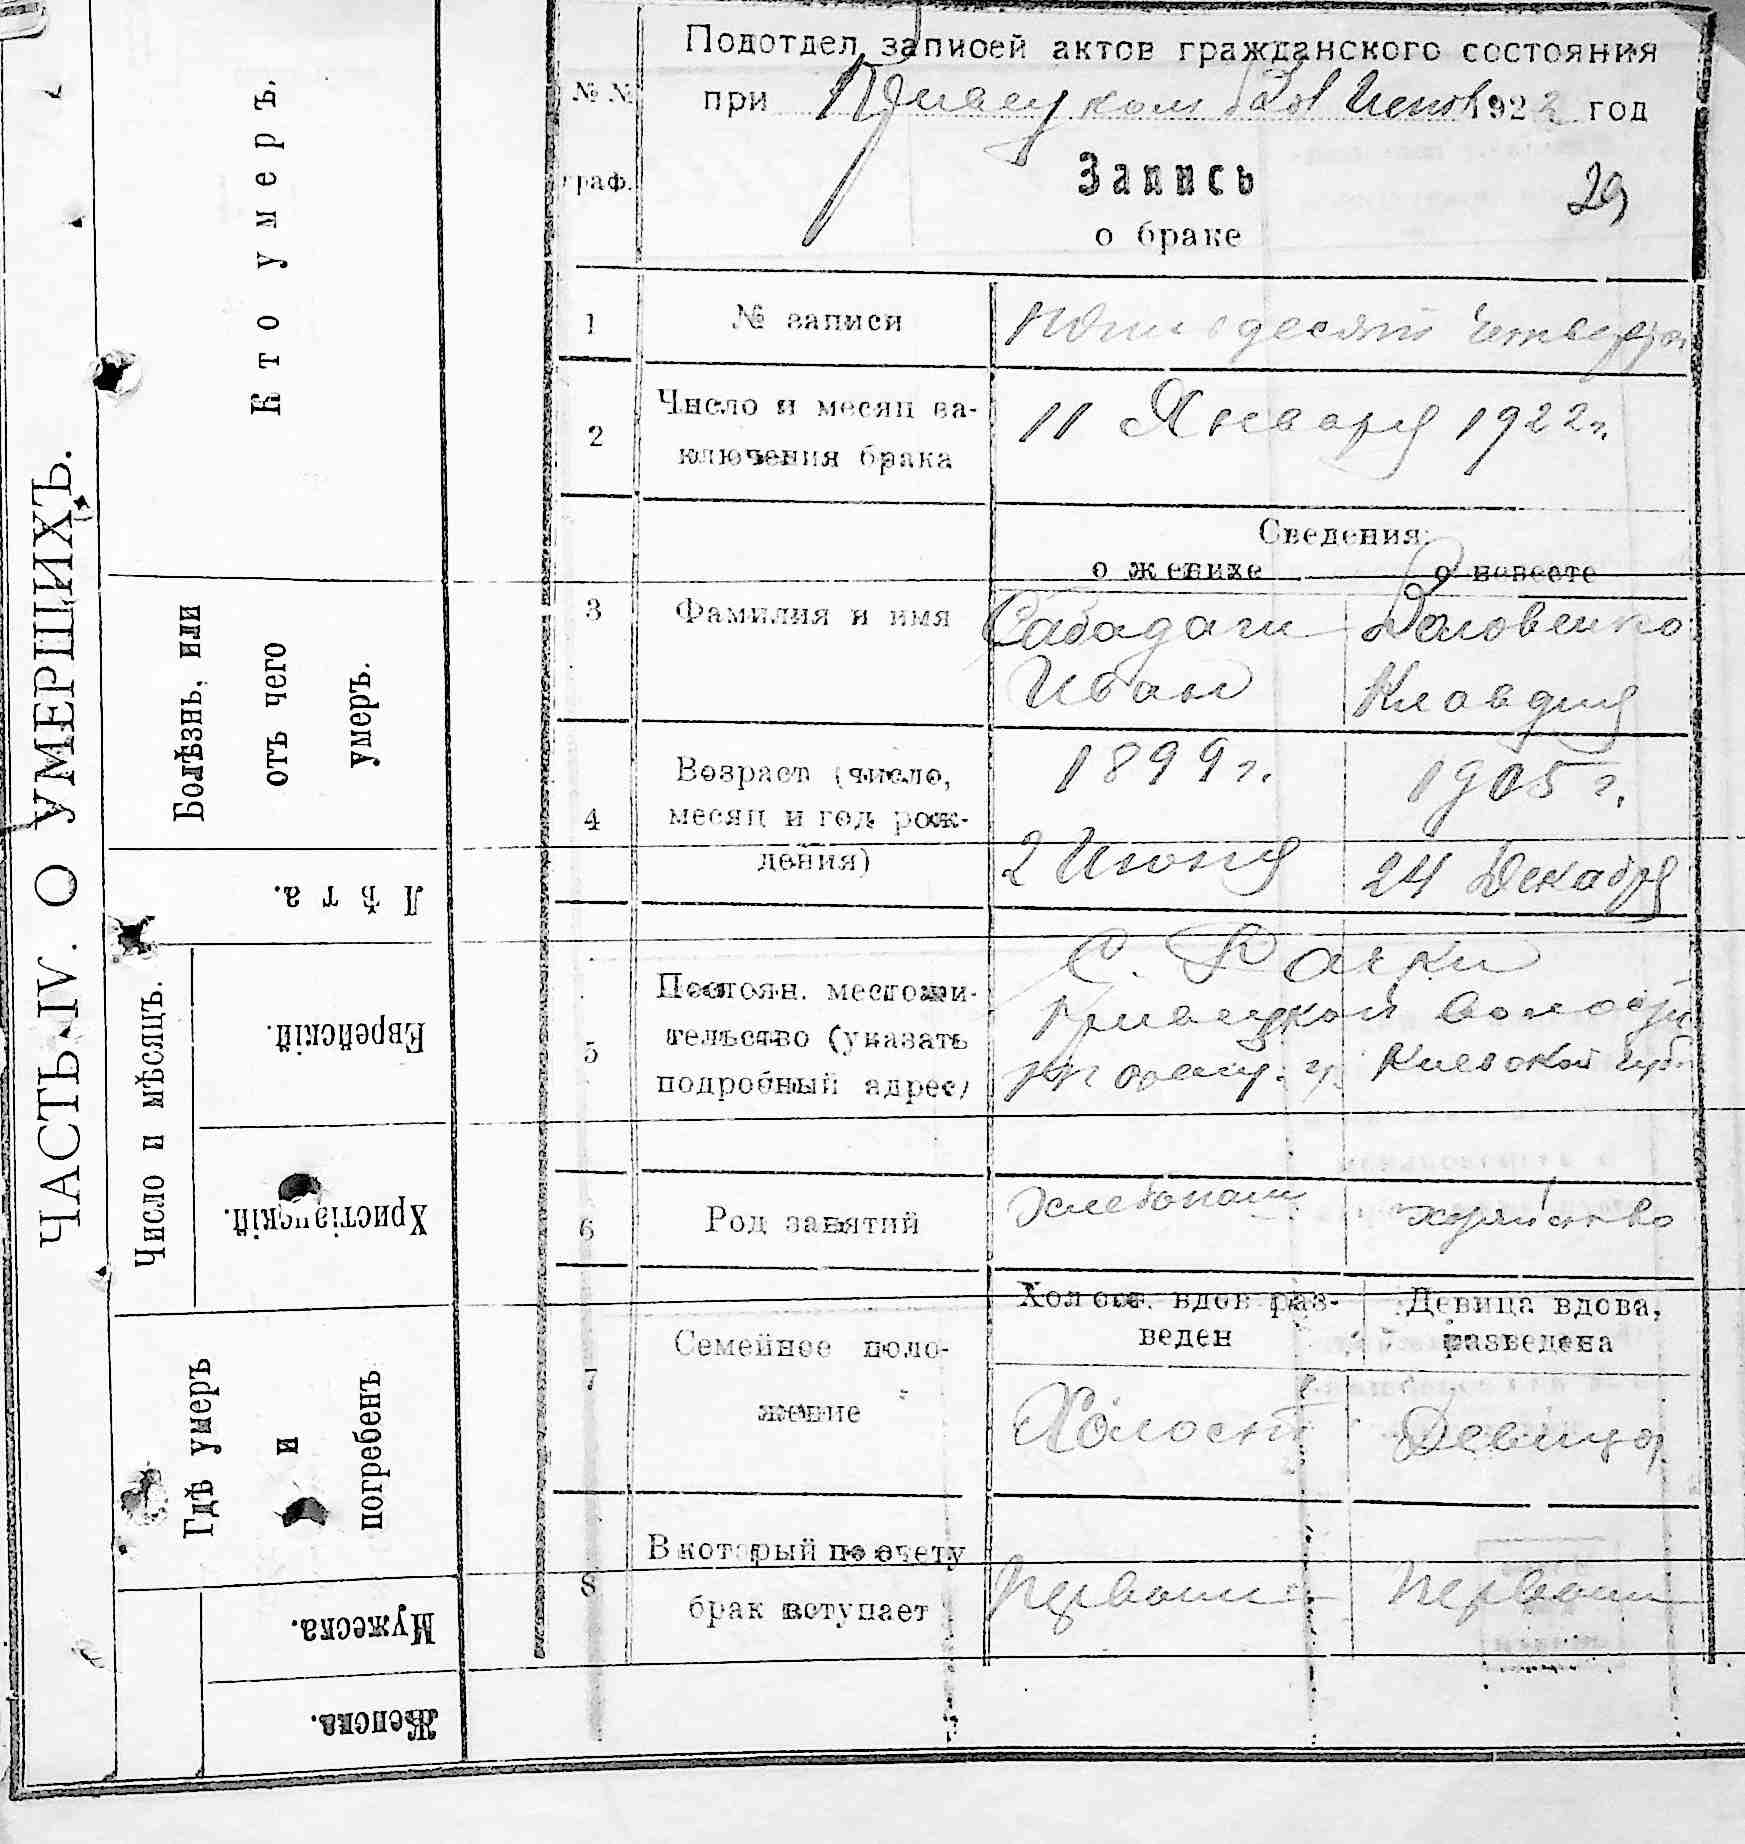 ЧАСТЬ IV. О УМЕРШИХЪ.
Кто умеръ.
Болѣзнь, или
отъ чего
умеръ.
Лѣта.
Число и мѣсяцъ.
Еврейскій.
Христіанскій.
Гдѣ умеръ
и
погребенъ
Мужеска.
Женска.
№№
граф.
Подотдел записей актов гражданского состояния
при 1922 год
Запись
29
о браке
1
№ записи
четвертая
2
Число и месяц за-
ключения брака
11 Января 1922 г.
Сведения:
о женихе
о невесте
3
Фамилия и имя
Сабадаш
Иван
Клавдия
4
Возраст (число,
месяц и год рож-
дения)
1899 г.
2 Июня
1905 г.
24 Декабря
5
Постоян. местожи-
тельство (указать
подробный адрес)
С.
Киевской губ.
6
Род занятий
Хлебопаш
хозяйство
7
Семейное поло-
жение
Холост. вдов раз-
веден
Девица вдова,
разведена
Холост
Девица
8
В который по счету
брак вступает
Первый
Первый